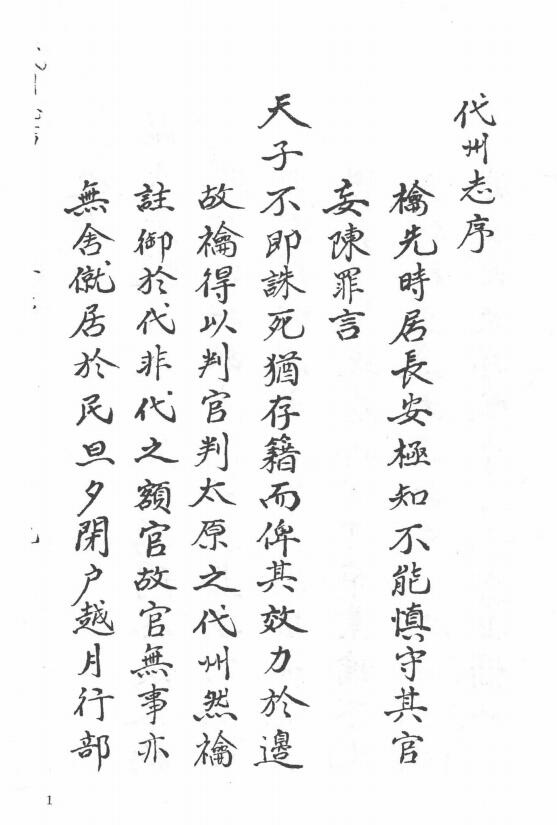 代州志序
禴先時居長安極知不能慎守其官
妄陳罪言
天子不即誅死猶存籍而俾其效力於邊
故禴得以判官判太原之代州然禴
註御於代非代之額官故官無事亦
無舍僦居於民旦夕閉户越月行部
1